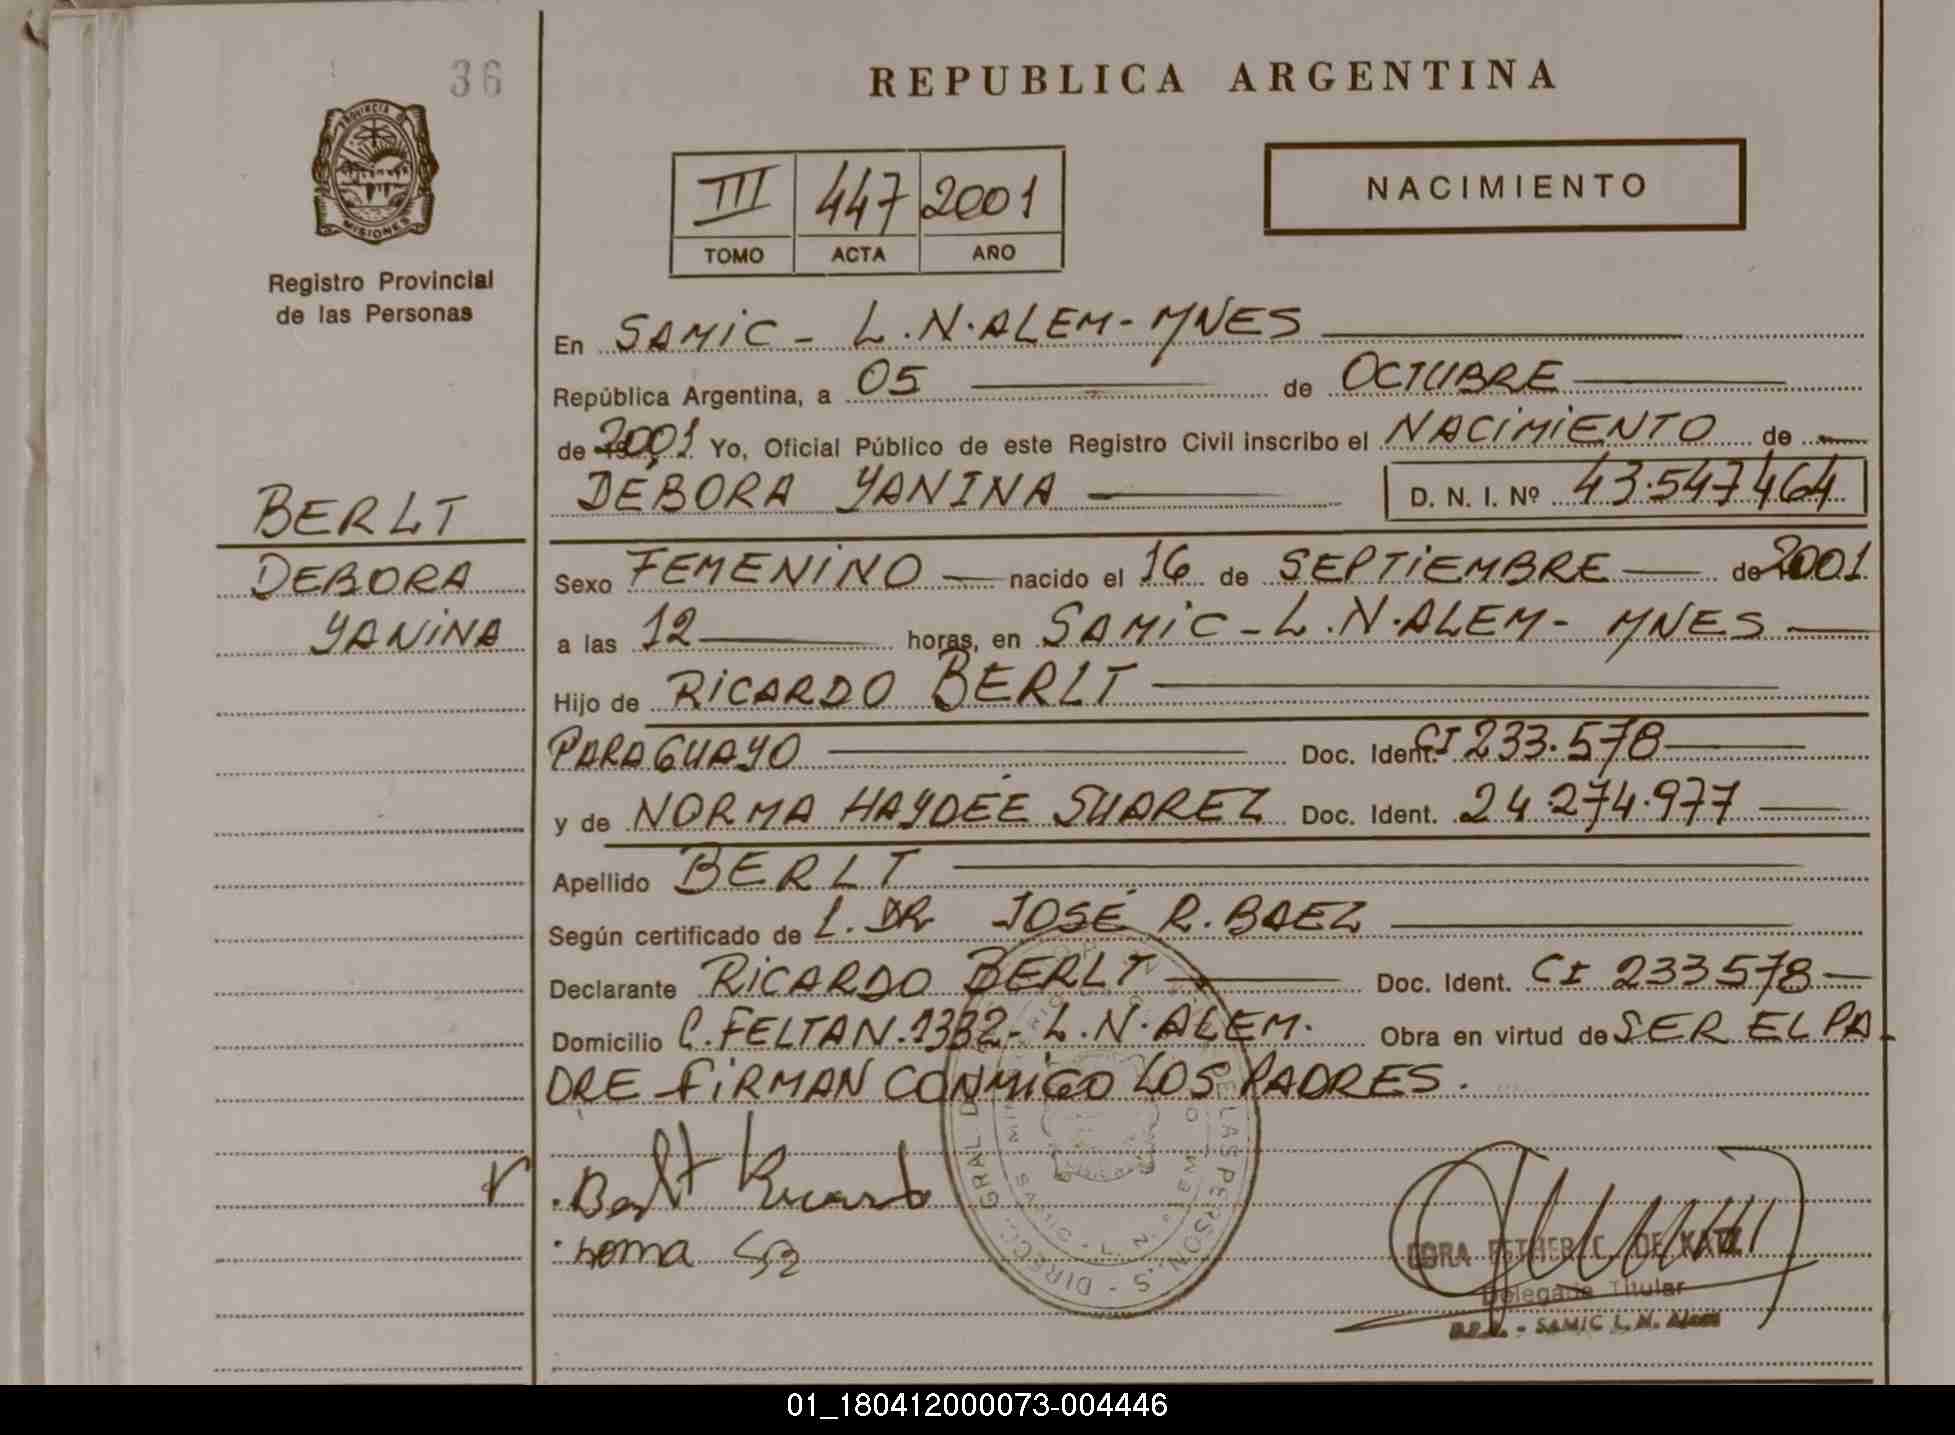 36
PROVINCIA DE
MISIONES
Registro Provincial
de las Personas
BERLT
DEBORA
YANINA
REPUBLICA ARGENTINA
III 447 2001
TOMO ACTA AÑO
NACIMIENTO
En SAMIC - L.N. ALEM - MNES
República Argentina, a 05 de OCTUBRE
de 2001 Yo, Oficial Público de este Registro Civil inscribo el NACIMIENTO de
DEBORA YANINA D. N. I. Nº 43.547464
Sexo FEMENINO nacido el 16 de SEPTIEMBRE de 2001
a las 12 horas, en SAMIC - L.N. ALEM - MNES
Hijo de RICARDO BERLT
PARAGUAYO Doc. Ident. CI 233.578
y de NORMA HAYDÉE SUAREZ Doc. Ident. 24.274.977
Apellido BERLT
Según certificado de L. DR JOSÉ R. BAEZ
Declarante RICARDO BERLT Doc. Ident. CI 233578
Domicilio C. FELTAN. 1332 - L.N. ALEM. Obra en virtud de SER EL PA
DRE FIRMAN CONMIGO LOS PADRES.
Berlt Ricardo
DIRECC. GRAL. DE LAS PERSONAS
ESTHER C. DE KATZ
Delegada Titular
SAMIC L. N. Alem
01_180412000073-004446